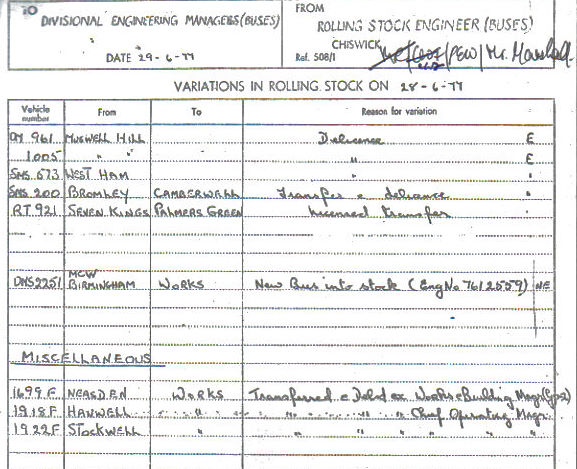 TO
DIVISIONAL ENGINEERING MANAGERS (BUSES)
DATE 29-6-77
FROM
ROLLING STOCK ENGINEER (BUSES)
CHISWICK
Ref. 508/1 /PEW/Mr. Marshall
VARIATIONS IN ROLLING STOCK ON 28-6-77
Vehicle number From To Reason for variation
DM 961 MUSWELL HILL Delicence E
1005 " " " E
SMS 673 WEST HAM " "
SMS 200 BROMLEY CAMBERWELL Transfer & delicence "
RT 921 SEVEN KINGS PALMERS GREEN Licensed transfer "
DMS 2251 MCW BIRMINGHAM WORKS New Bus into stock (Eng No 7612559) NE
MISCELLANEOUS
1699 F NEASDEN WORKS Transferred & Debited ex Works & Building Mngr (Gps2)
1918 F HANWELL " " " " " Chief Operating Mngr.
1922 F STOCKWELL " " " " " " " "